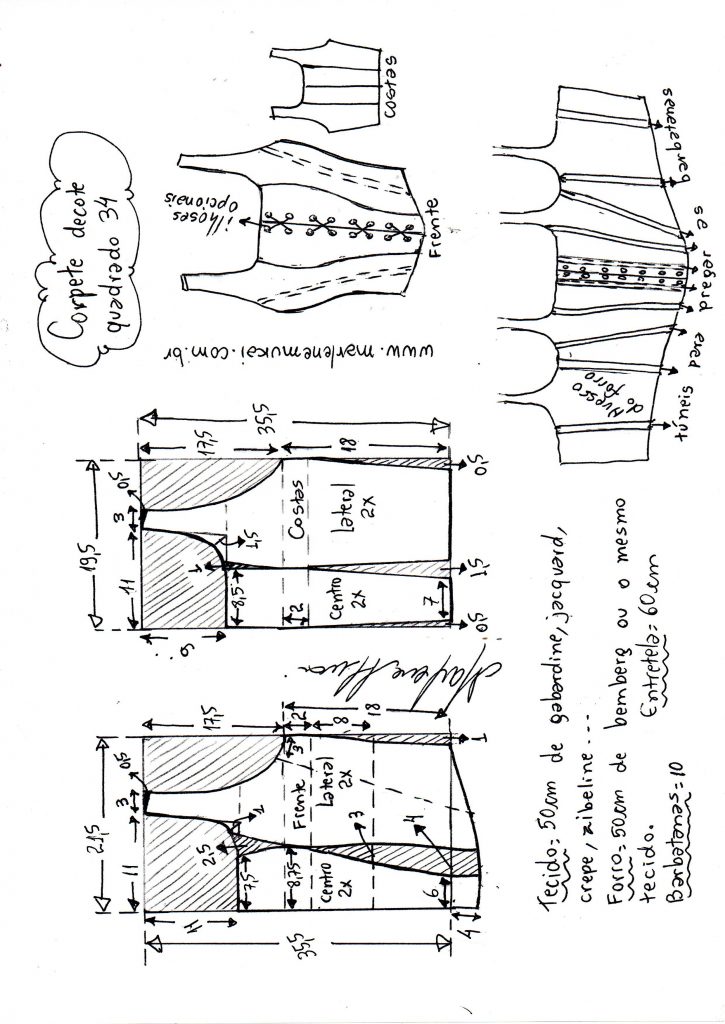 Corpete decote
quadrado 34
ilhoses
opcionais
Frente
costas
www.marlenemukai.com.br
barbatanas
pregar as
para
túneis
Avesso
do forro
21,5
11
3
0,5
17,5
2
8
18
3
11
35,5
2,5
1
7,5
8,75
Frente
Centro
2x
Lateral
2x
3
4
6
4
1
19,5
11
3
0,5
17,5
35,5
18
9
1
1,5
8,5
2
Costas
Centro
2x
Lateral
2x
7
0,5
1,5
0,5
Tecido=50cm de gabardine, jacquard,
crepe, zibeline...
Forro=50cm de bemberg ou o mesmo
tecido.
Entretela=60cm
Barbatanas=10